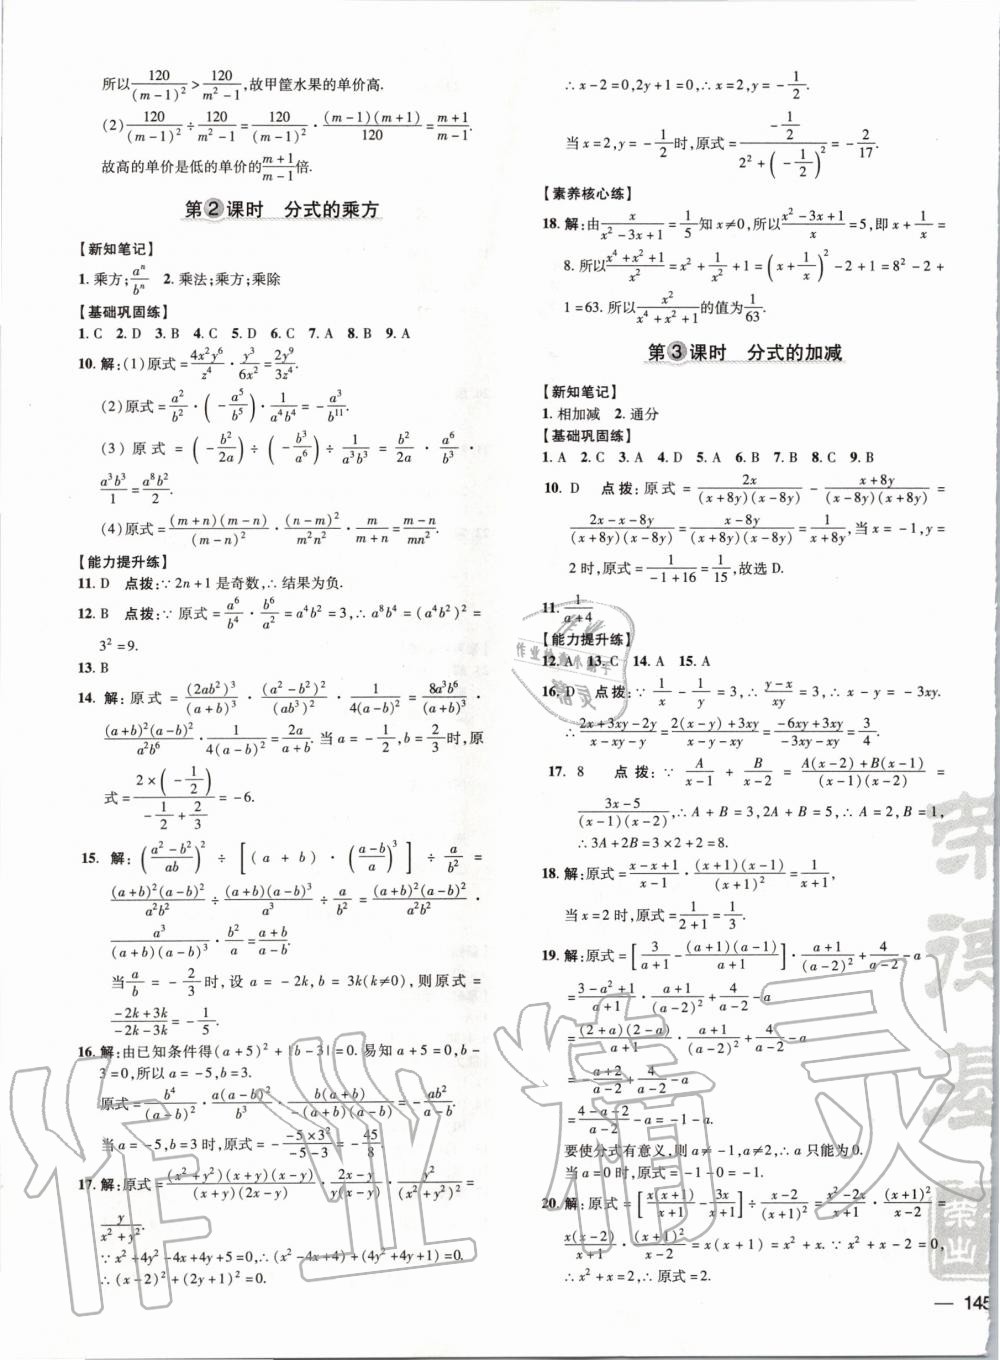 所以120/(m-1)²>120/(m²-1),故甲筐水果的单价高.
(2)120/(m-1)²÷120/(m²-1)=120/(m-1)²·(m-1)(m+1)/120=(m+1)/(m-1).
故高的单价是低的单价的(m+1)/(m-1)倍.
第2课时 分式的乘方
【新知笔记】
1. 乘方;aⁿ/bⁿ 2. 乘法;乘方;乘除
【基础巩固练】
1. C 2. D 3. B 4. C 5. D 6. C 7. A 8. B 9. A
10. 解:(1)原式=4x²y⁶/z⁴·y³/6x²=2y⁹/3z⁴.
(2)原式=a²/b²·(-a⁵/b⁵)·1/a⁴b⁴=-a³/b¹¹.
(3)原式=(-b²/2a)÷(-b³/a⁶)÷1/a³b³=b²/2a·a⁶/b³·
a³b³/1=a⁸b²/2.
(4)原式=(m+n)(m-n)/(m-n)²·(n-m)²/m²n²·m/(m+n)=(m-n)/mn².
【能力提升练】
11. D 点拨:∵2n+1是奇数,∴结果为负.
12. B 点拨:∵原式=a⁶/b⁴·b⁶/a²=a⁴b²=3,∴a⁸b⁴=(a⁴b²)²=
3²=9.
13. B
14. 解:原式=(2ab²)³/(a+b)³·(a²-b²)²/(ab³)²·1/4(a-b)²=8a³b⁶/(a+b)³·
(a+b)²(a-b)²/a²b⁶·1/4(a-b)²=2a/(a+b). 当a=-1/2,b=2/3时,原
式=2×(-1/2)/(-1/2+2/3)=-6.
15. 解:((a²-b²)/ab)²÷[(a+b)·((a-b)/a)³]÷a/b²=
(a+b)²(a-b)²/a²b²÷(a+b)(a-b)³/a³÷a/b²=(a+b)²(a-b)²/a²b²·
a³/(a+b)(a-b)³·b²/a=(a+b)/(a-b).
当a/b=-2/3时,设a=-2k,b=3k(k≠0),则原式=
(-2k+3k)/(-2k-3k)=-1/5.
16. 解:由已知条件得(a+5)²+|b-3|=0. 易知a+5=0,b-
3=0,所以a=-5,b=3.
原式=b⁴/(a-b)²·a(a-b)/b³·b(a+b)/(a+b)(a-b)=ab²/
当a=-5,b=3时,原式=-(-5×3²)/(-5-3)=-45/8.
17. 解:原式=(x²+y²)(x+y)(x-y)/(x+y)(2x-y)·(2x-y)/y(x-y)·y²/(x²+y²)²=
y/(x²+y²).
∵x²+4y²-4x+4y+5=0,∴(x²-4x+4)+(4y²+4y+1)=0.
∴(x-2)²+(2y+1)²=0.
∴x-2=0,2y+1=0,∴x=2,y=-1/2.
当x=2,y=-1/2时,原式=(-1/2)/(2²+(-1/2)²)=-2/17.
【素养核心练】
18. 解:由x/(x²-3x+1)=1/5知x≠0,所以(x²-3x+1)/x=5,即x+1/x=
8. 所以(x⁴+x²+1)/x²=x²+1/x²+1=(x+1/x)²-2+1=8²-2+
1=63. 所以x²/(x⁴+x²+1)的值为1/63.
第3课时 分式的加减
【新知笔记】
1. 相加减 2. 通分
【基础巩固练】
1. A 2. C 3. A 4. A 5. A 6. B 7. B 8. C 9. B
10. D 点拨:原式=2x/(x+8y)(x-8y)-(x+8y)/(x-8y)(x+8y)=
(2x-x-8y)/(x+8y)(x-8y)=(x-8y)/(x+8y)(x-8y)=1/(x+8y),当x=-1,y=
2时,原式=1/(-1+16)=1/15,故选D.
11. 1/(a+4)
【能力提升练】
12. A 13. C 14. A 15. A
16. D 点拨:∵1/x-1/y=3,∴(y-x)/xy=3,∴x-y=-3xy.
∴(2x+3xy-2y)/(x-xy-y)=(2(x-y)+3xy)/(x-y-xy)=(-6xy+3xy)/(-3xy-xy)=3/4.
17. 8 点拨:∵A/(x-1)+B/(x-2)=(A(x-2)+B(x-1))/(x-1)(x-2)=
(3x-5)/(x-1)(x-2),∴A+B=3,2A+B=5,∴A=2,B=1,
∴3A+2B=3×2+2=8.
18. 解:原式=(x-x+1)/(x-1)·(x+1)(x-1)/(x+1)²=1/(x+1),
当x=2时,原式=1/(2+1)=1/3.
19. 解:原式=[3/(a+1)-(a+1)(a-1)/(a+1)]·(a+1)/(a-2)²+4/(a-2)-a
=(3-a²+1)/(a+1)·(a+1)/(a-2)²+4/(a-2)-a
=(2+a)(2-a)/(a+1)·(a+1)/(a-2)²+4/(a-2)-a
=-(a+2)/(a-2)+4/(a-2)-a
=(4-a-2)/(a-2)-a=-1-a.
要使分式有意义,则a≠-1,a≠2,∴a只能为0.
当a=0时,原式=-1-0=-1.
20. 解:原式=[x(x+1)/(x+1)-3x/(x+1)]÷(x-2)/(x+1)²=(x²-2x)/(x+1)·(x+1)²/(x-2)=
x(x-2)/(x+1)·(x+1)²/(x-2)=x(x+1)=x²+x,∵x²+x=0,
∴x²+x=0,∴原式=2.
— 145
作业精灵
荣德基
荣
出
作业
作业检查小助手
精灵